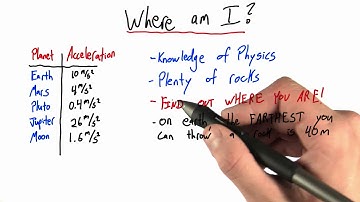 Where am I?
Planet Acceleration
Earth 10 m/s²
Mars 4 m/s²
Pluto 0.4 m/s²
Jupiter 26 m/s²
Moon 1.6 m/s²
- Knowledge of Physics
- Plenty of rocks
- FIND OUT WHERE YOU ARE!
- On earth, the FARTHEST you
can throw a rock is 40m